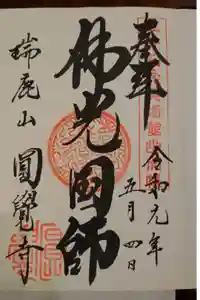 奉拝
令和元年
五月四日
佛光國師
瑞鹿山
圓覺寺